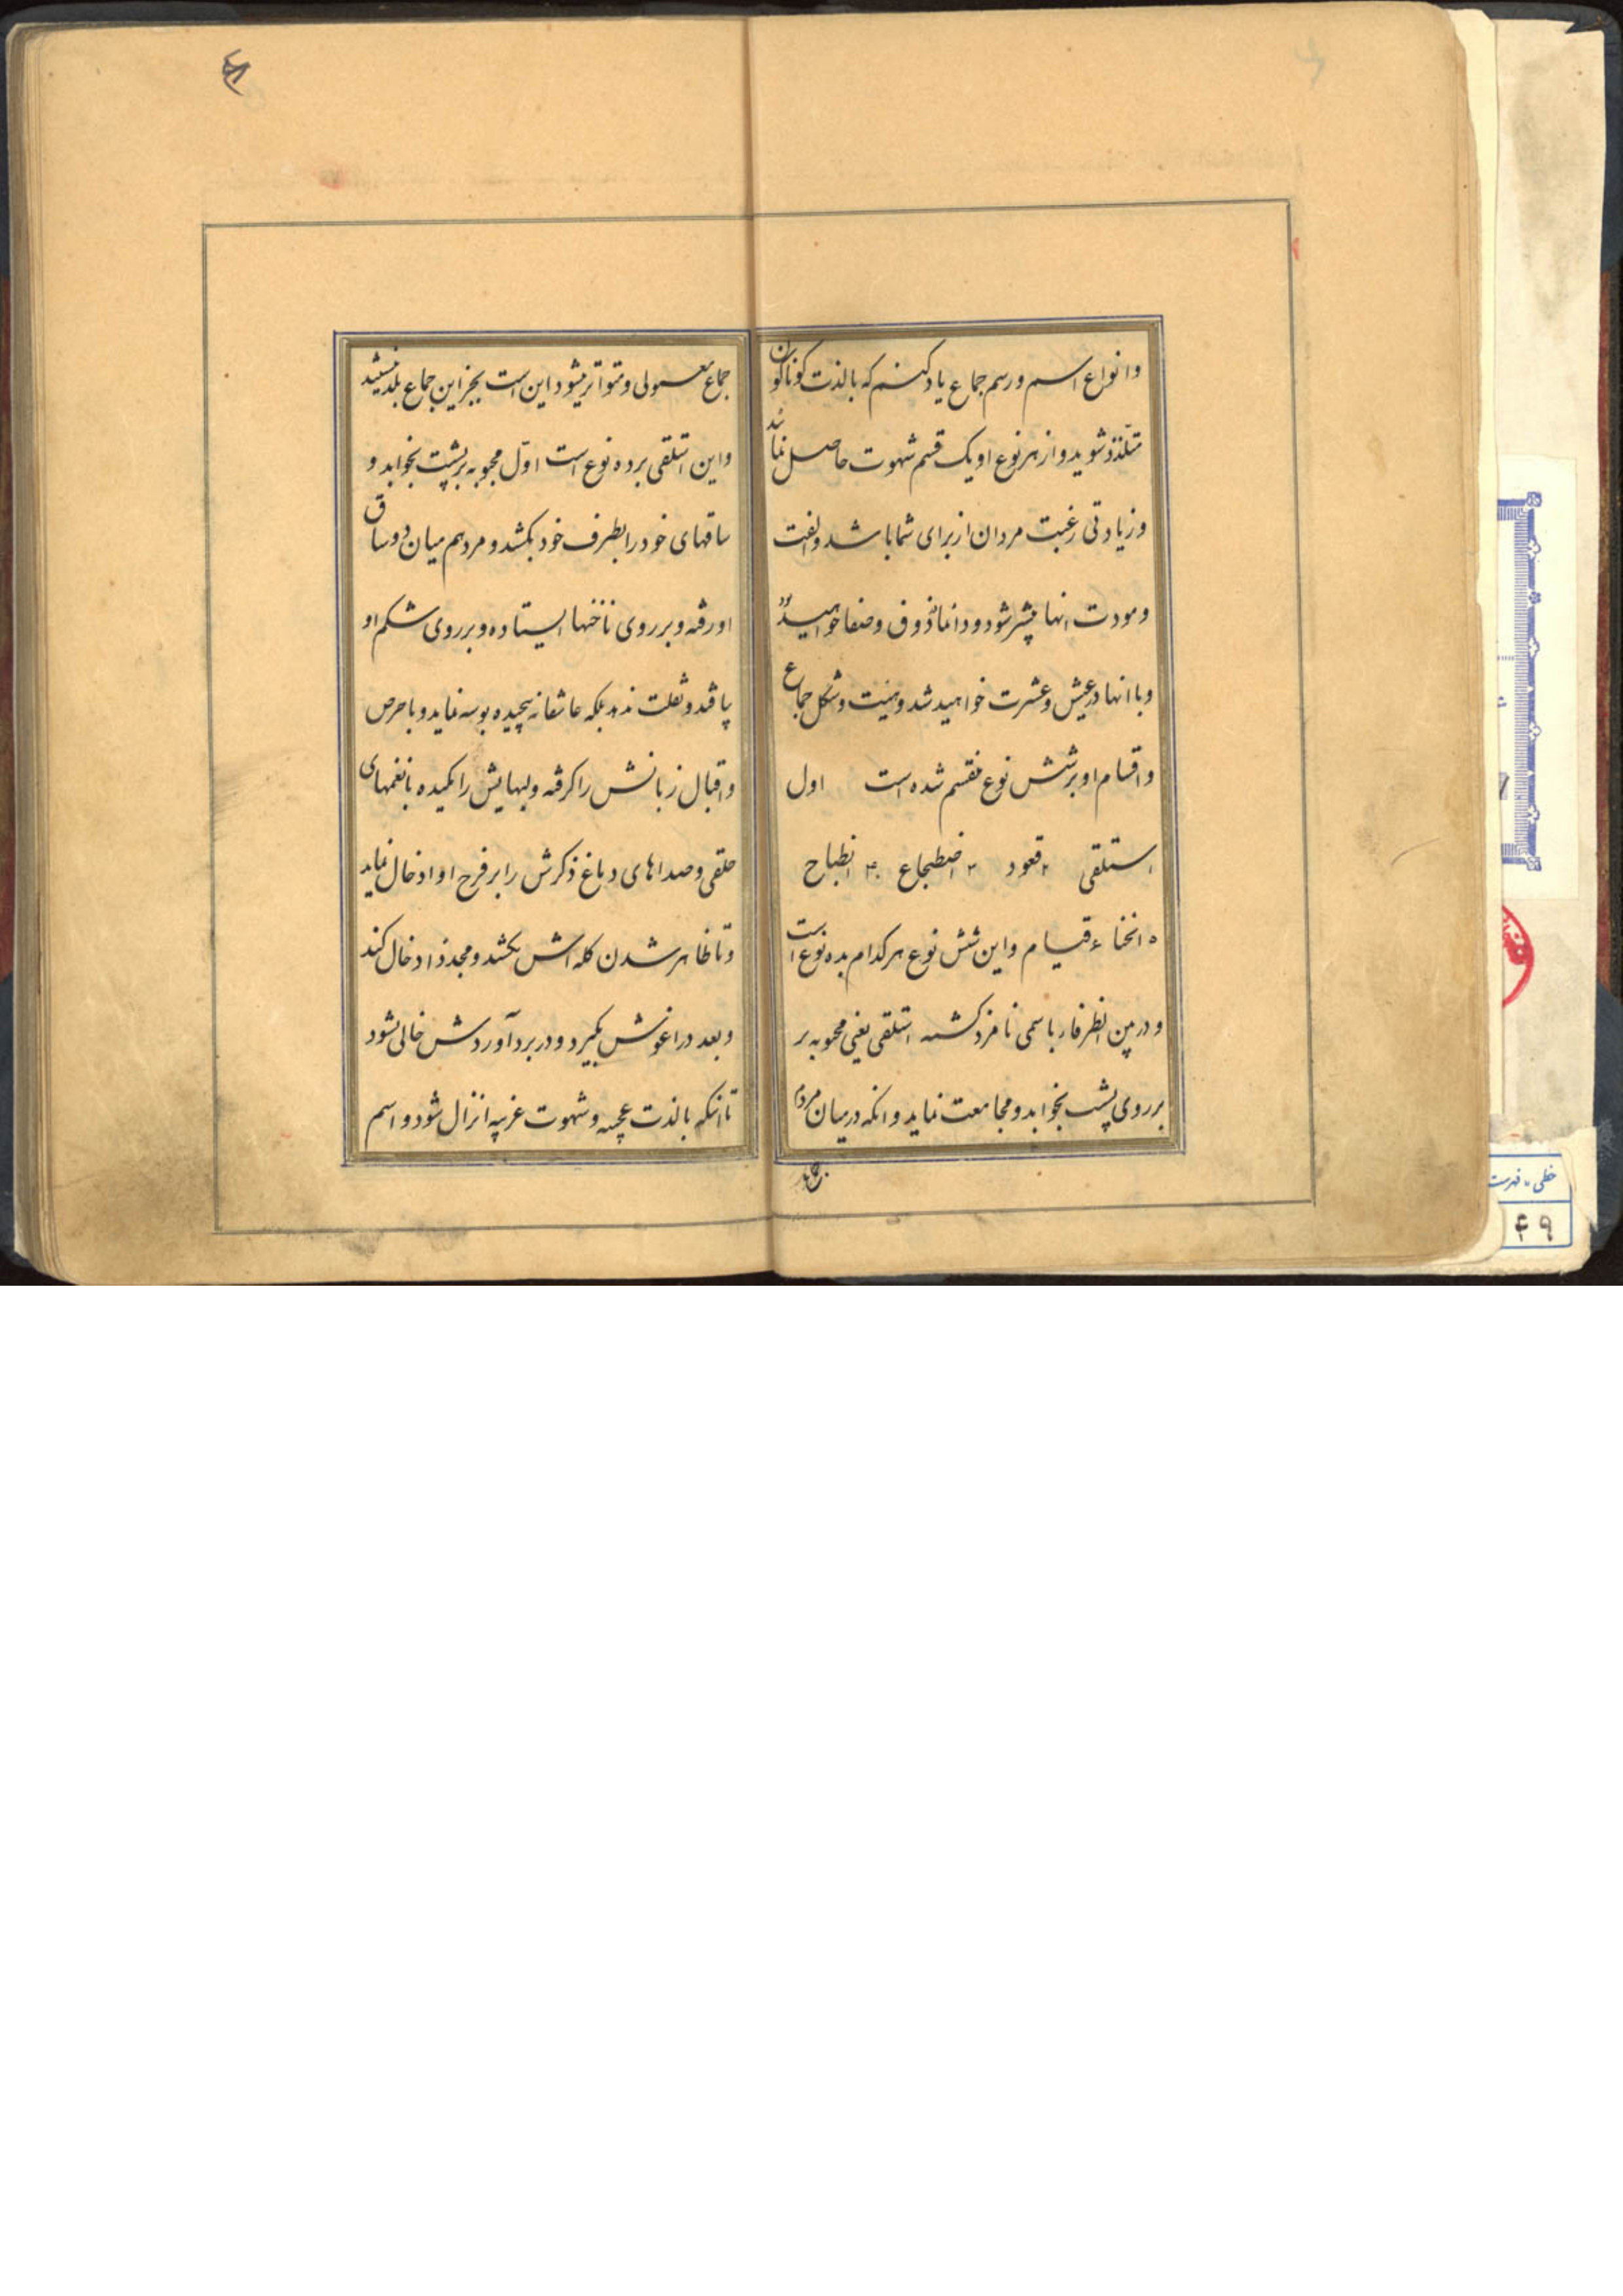 وانواع اسم و رسم جماع یاد کنم که بالذت کوناکون
متلذذ شوید و از هر نوع او یک قسم شهوت حاصل نماید
و زیادتی رغبت مردان از برای شما باشد و الفت
و مودت انها بیشتر شود و دائما ذوق و صفا خواهید
و با انها در عیش و عشرت خواهید شد و هیئت و شکل جماع
و اقسام او بر شش نوع منقسم شده است اول
استلقی ۲ قعود ۳ اضطجاع ۴ انطباح
۵ انخناء ۶ قیام و این شش نوع هر کدام بده نوع است
و در بین الظرفا ر باسمی نامزد کشته استلقی یعنی محبوبه بر
بر روی پشت بخوابد و مجامعت نماید و انکه در میان مردم
جماع
جماع معمولی و متواتر میشود این است بجز این جماع بلد نیستید
و این استلقی بر ده نوع است اول محبوبه بر پشت بخوابد و
ساقهای خود را بطرف خود بکشد و مرد هم میان دو ساق
او رفته و بر روی ناخنها ایستاده و بر روی شکم او
بیافتد و ثقلت ندهد بلکه عاشقانه پیچیده بوسه نماید و با حرص
و اقبال زبانش را کرفته و لبهایش را مکیده با نغمهای
حلقی و صداهای دماغ ذکرش را بر فرج او ادخال نماید
و تا ظاهر شدن کله اش بکشد و مجددا ادخال کند
و بعد در اغوش بکیرد و در بر داوردش خالی شود
تا انکه بالذت عجیبه و شهوت غریبه انزال شود و اسم
خطی - فهرست
۴۹